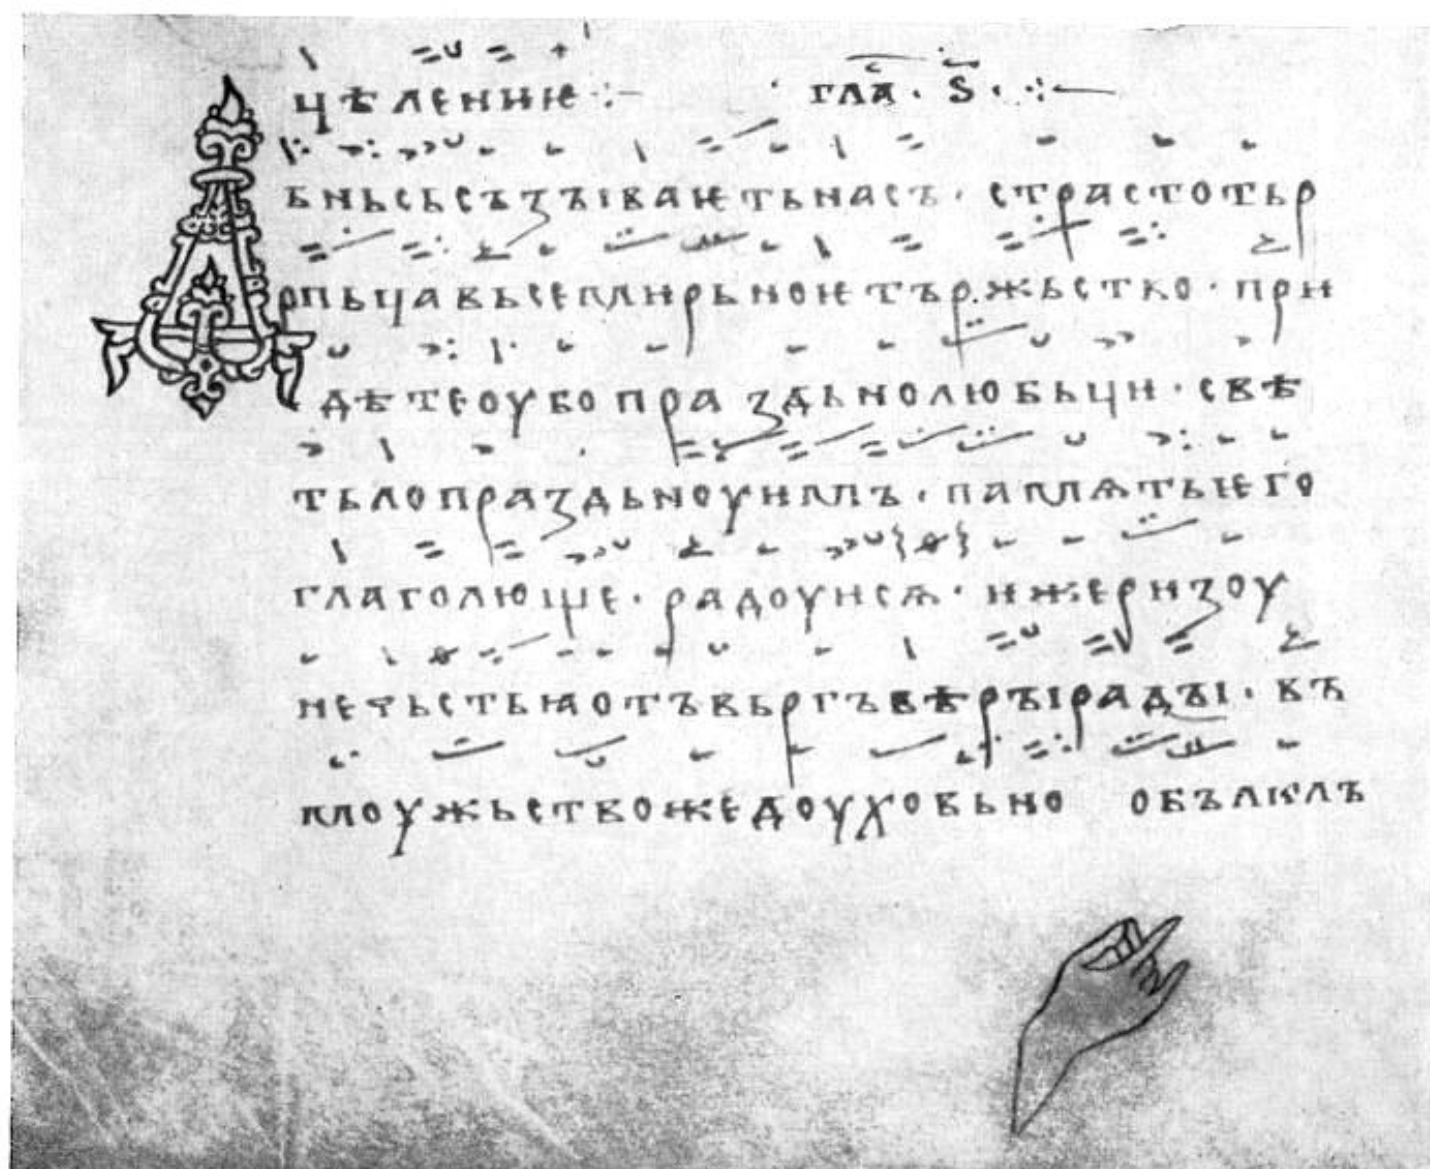 цѣлениѥ :~ гла҃ · ѕ҃ · :~
Дьньсьсъзꙑваѥтьнасъ · страстотьр
рпьцавьсемирьноѥтържьство · при
дѣтеоубопраздьнолюбьци · свѣ
тьлопраздьноуимъ · памѧтьѥго
глаголюще · радоуисѧ · ижеризоу
нечьстьꙗотъвьргъвѣрꙑрадꙑ · въ
моужьствожедоуховьно обълклъ